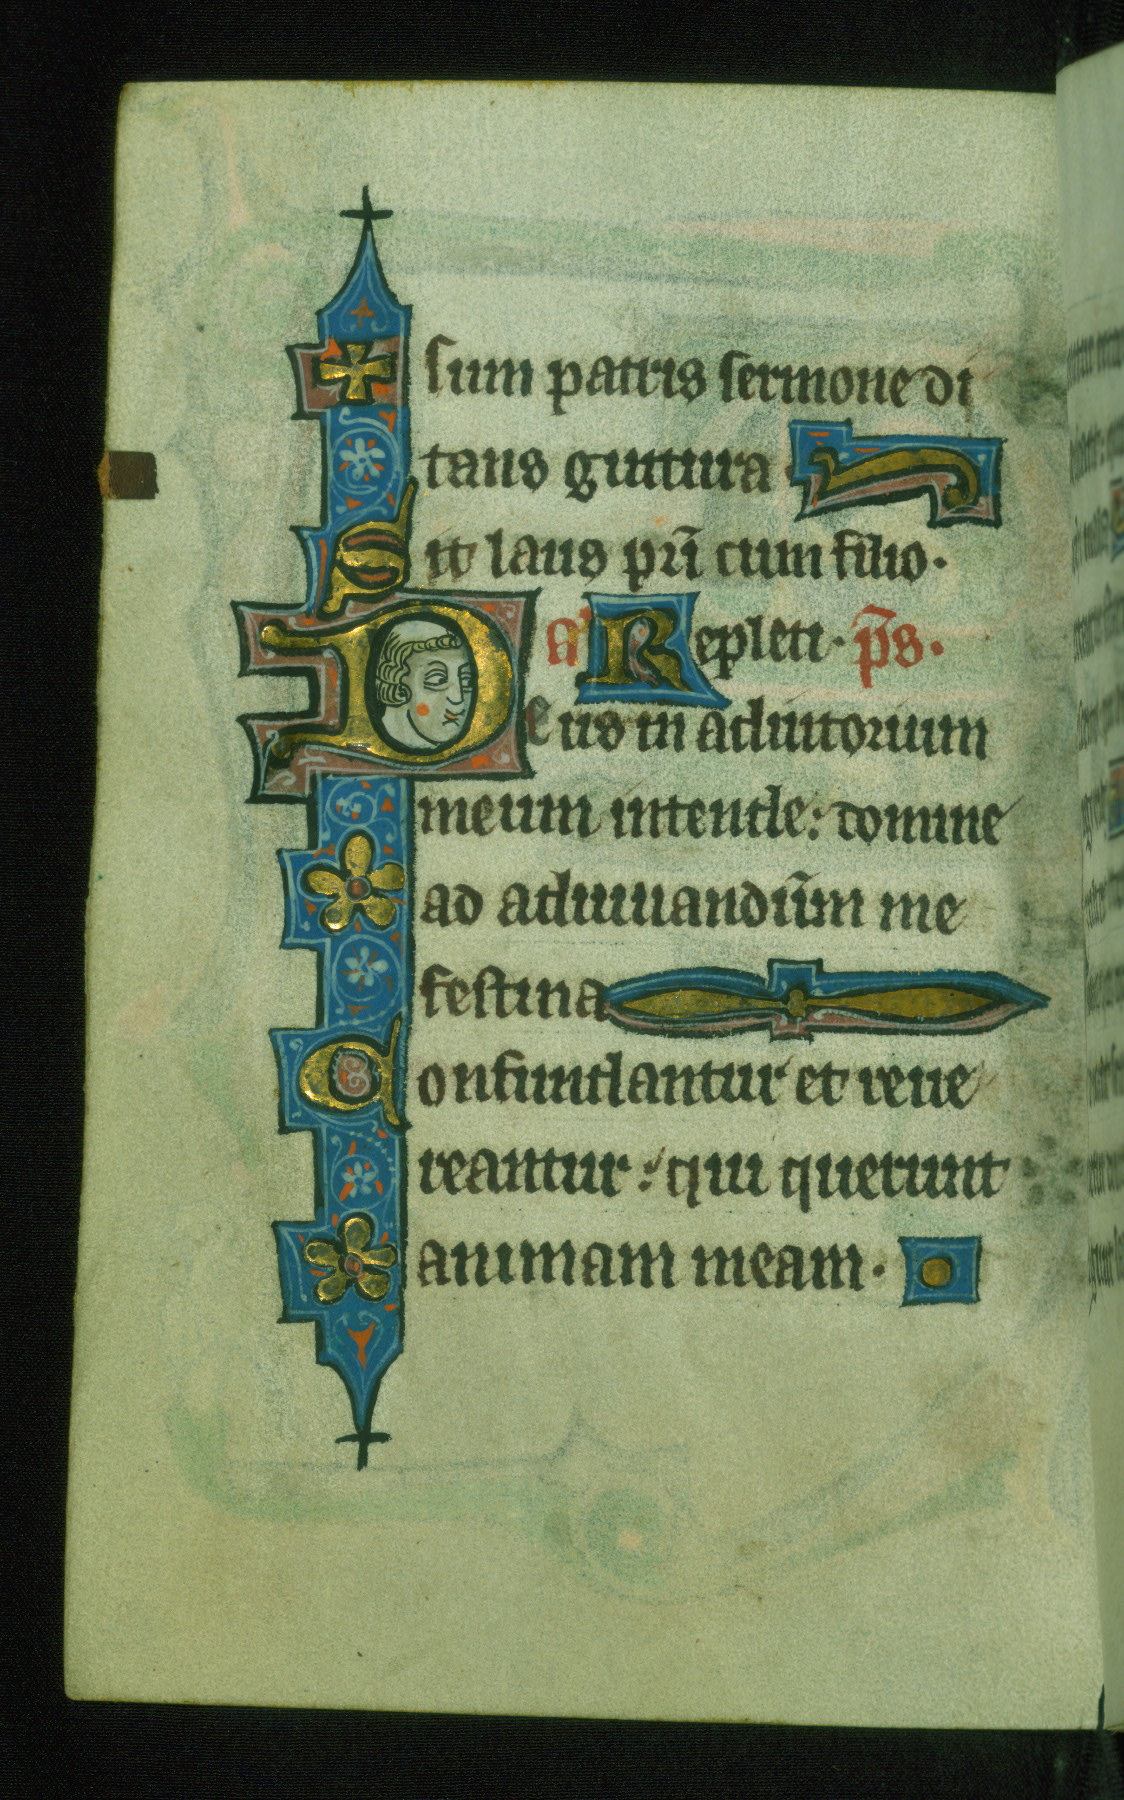 sum patris sermone di
tans guttura
Sit laus pr̄i cum filio.
a' Repleti. p̄s.
Deus in adiutorium
meum intende: domine
ad adiuuandūm me
festina
Confundantur et reue
reantur: qui querunt
animam meam.